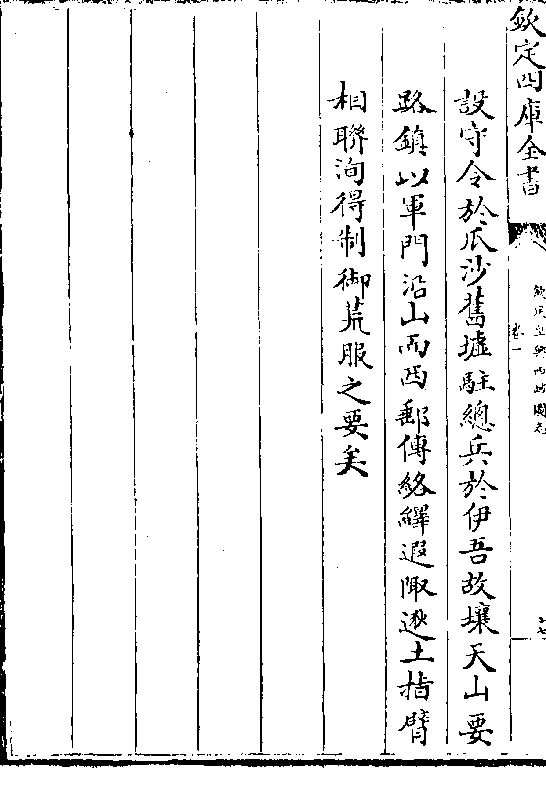 欽定四庫全書
欽定皇輿西域圖志
卷一
十七
設守令於瓜沙舊墟駐總兵於伊吾故壤天山要
路鎮以軍門沿山而西郵傳絡繹遐陬逖土指臂
相聯洵得制御荒服之要矣